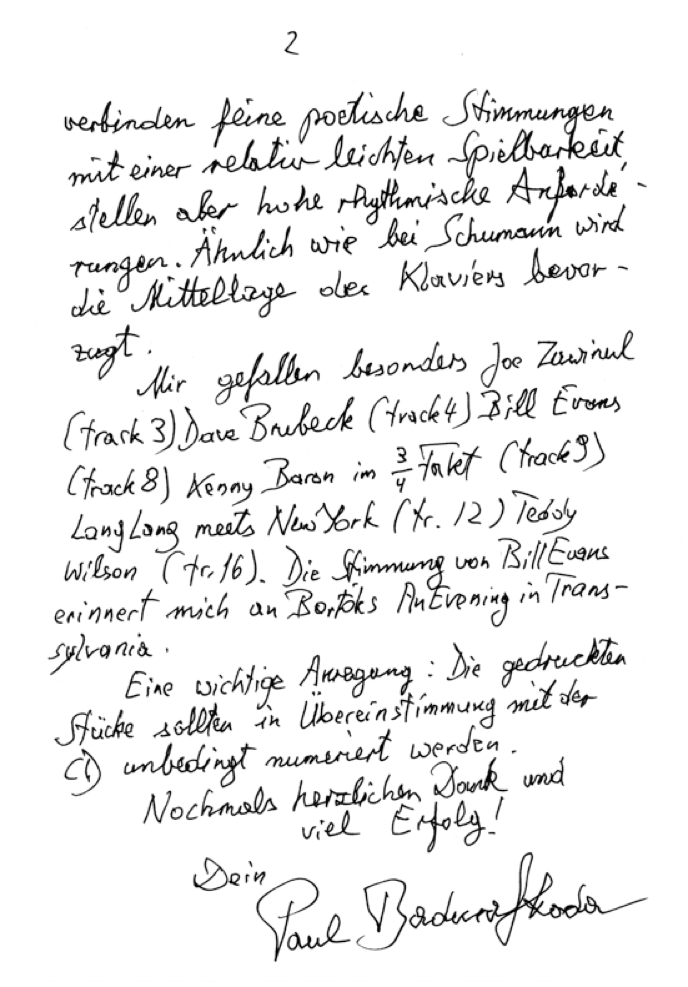 2
verbinden feine poetische Stimmungen
mit einer relativ leichten Spielbarkeit,
stellen aber hohe rhythmische Anforde-
rungen. Ähnlich wie bei Schumann wird
die Mittellage des Klaviers bevor-
zugt.
Mir gefallen besonders Joe Zawinul
(track 3) Dave Brubeck (track 4) Bill Evans
(track 8) Kenny Baron im 3/4 Takt (track 9)
Lang Lang meets New York (tr. 12) Teddy
Wilson (tr. 16). Die Stimmung von Bill Evans
erinnert mich an Bartóks An Evening in Trans-
sylvania.
Eine wichtige Anregung: Die gedruckten
Stücke sollten in Übereinstimmung mit der
CD unbedingt numeriert werden.
Nochmals herzlichen Dank und
viel Erfolg!
Dein
Paul Badura-Skoda